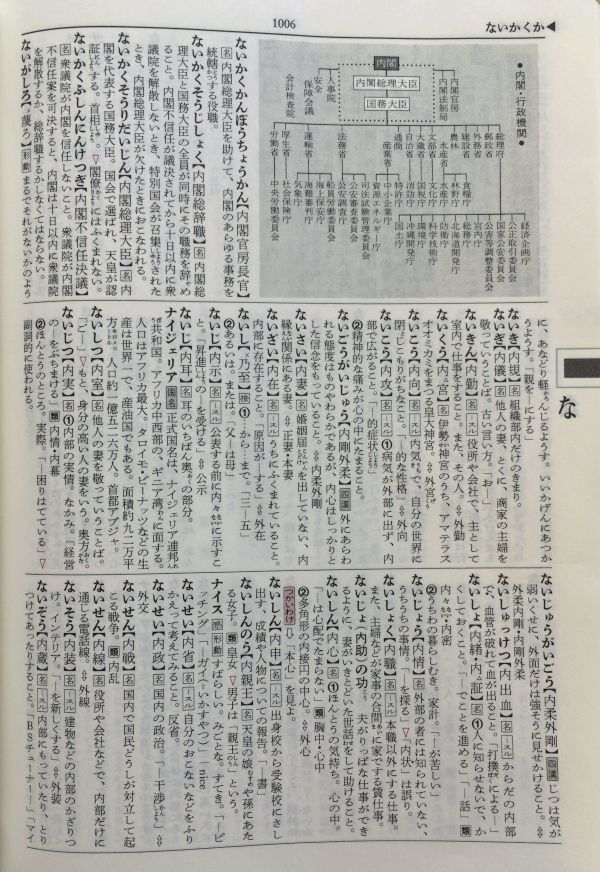 1006
ないかくか◀
●内閣・行政機関●
内閣
内閣総理大臣
国務大臣
内閣官房
内閣法制局
人事院
安全保障会議
会計検査院
総理府
郵政省
外務省
建設省
農林水産省
文部省
大蔵省
自治省
通商産業省
法務省
運輸省
厚生省
労働省
経済企画庁
公正取引委員会
国家公安委員会
公害等調整委員会
宮内庁
総務庁
北海道開発庁
防衛庁
科学技術庁
環境庁
沖縄開発庁
国土庁
食糧庁
林野庁
水産庁
文化庁
国税庁
消防庁
特許庁
中小企業庁
資源エネルギー庁
司法試験管理委員会
公安審査委員会
公安調査庁
船員労働委員会
海上保安庁
海難審判庁
気象庁
社会保険庁
中央労働委員会
ないかくかんぼうちょうかん【内閣官房長官】
名内閣総理大臣を助けて、内閣のあらゆる事務を
統轄する役職。
ないかくそうじしょく【内閣総辞職】名内閣総
理大臣と国務大臣の全員が同時にその職務を辞め
ること。内閣不信任が議決されてから十日以内に衆
議院を解散しないとき、特別国会が召集されたと
き、内閣総理大臣が欠けたときにおこなわれる。
ないかくそうりだいじん【内閣総理大臣】名内
閣を代表する国務大臣。国会で選ばれ、天皇が認
証する。首相。▽閣僚にはふくまれない。
ないかくふしんにんけつぎ【内閣不信任決議】
名衆議院が内閣を信任しないこと。衆議院が内閣
不信任案を可決すると、内閣は十日以内に衆議院
を解散するか、総辞職するかしなくてはならない。
ないがしろ【蔑ろ】形動まるでそれがないかのよう
に、あなどり軽んじるようす。いいかげんにあつか
うようす。「親を―にする」
ないき【内規】名組織部内だけのきまり。
ないぎ【内儀】名他人の妻。とくに、商家の主婦を
敬っていうことば。古い言い方。「お―」
ないきん【内勤】名―スル役所や会社で、主として
室内で仕事をすること。また、その人。⇔外勤
ないくう【内宮】名伊勢神宮のうち、アマテラス
オオミカミをまつる皇大神宮。⇔外宮
ないこう【内向】名―スル内気で、自分の世界に
閉じこもりがちなこと。「―的な性格」⇔外向
ないこう【内攻】名―スル①病気が外部に出ず、内
部で広がること。「―的症状」
②精神的な痛みが心の中にたまること。
ないごうがいじゅう【内剛外柔】四漢外にあらわ
れる態度はものやわらかであるが、内心はしっかりと
した信念をもっていること。⇔内柔外剛
ないさい【内妻】名婚姻届を出していない、内
縁関係にある妻。⇔正妻・本妻
ないざい【内在】名―スルうちにふくまれていること。
内部に存在すること。「原因が―する」⇔外在
ないし【乃至】接①から…まで。「三―五」
②あるいは。または。「父―は母」
ないじ【内示】名―スル公表する前に内々に示すこ
と。「昇進の―を受ける」⇔公示
ないじ【内耳】名耳のいちばん奥の部分。
ナイジェリア国名正式国名は、ナイジェリア連邦
共和国。アフリカ中西部の、ギニア湾に面する。
人口はアフリカ最大。タロイモ・ピーナッツなどの生
産は世界一で、産油国でもある。面積約九二万平
方キロ、人口約一億五一六六万人。首都アブジャ。
ないしつ【内室】名他人の妻を敬っていうことば。
「ご―」▽もと、身分の高い人の妻をいう。奥方。
ないじつ【内実】名①内部の実情。なかみ。「経営
の―をぶちまける」類内情・内幕
②ほんとうのところ。実際。「―困りはてている」▽
副詞的に使われる。
な
ないじゅうがいごう【内柔外剛】四漢じつは気が
弱いくせに、外面だけは強そうに見せかけること。⇔
外柔内剛・内剛外柔
ないしゅっけつ【内出血】名―スルからだの内部
で、血管が破れて血が出ること。「打撲による―」
ないしょ【内緒・内証】名①人に知らせないで、か
くしておくこと。「―でことを進める」「―話」類
内々・内密
②うちわの暮らしむき。家計。「―が苦しい」
ないじょう【内情】名外部の者には知られていない、
うちうちの事情。「―を探る」▽「内状」は誤り。
ないしょく【内職】名―スル本職以外にする仕事。
また、主婦などが家事の合間に家でする賃仕事。
ないじょ【内助】の功。夫がりっぱな仕事ができ
るように、妻がいきとどいた世話をして助けること。
ないしん【内心】名①ほんとうの気持ち。心の中。
「―は心配でたまらない」類胸中・心中
②多角形の内接円の中心。⇔外心
つかいわけ⇨「本心」を見よ。
ないしん【内申】名―スル出身校から受験校にさし
出す、成績や人物についての報告。「―書」
ないしんのう【内親王】名天皇の娘や孫にあた
る女子。類皇女▽男子は「親王」という。
ナイス感形動すばらしい。みごとな。すてき。「―ピ
ッチング」「―ガイ（いかすやつ）」―nice
ないせい【内省】名―スル自分のおこないなどをふり
かえって考えてみること。反省。
ないせい【内政】名国内の政治。「―干渉」⇔
外交
ないせん【内戦】名国内で国民どうしが対立して起
こる戦争。類内乱
ないせん【内線】名役所や会社などで、内部だけに
通じる電話線。⇔外線
ないそう【内装】名―スル建物などの内部のかざりつ
け。インテリア。「―を新しくする」⇔外装
ないぞう【内蔵】名―スル内部にもっていたり、とり
つけてあったりすること。「BSチューナー―」「マイ